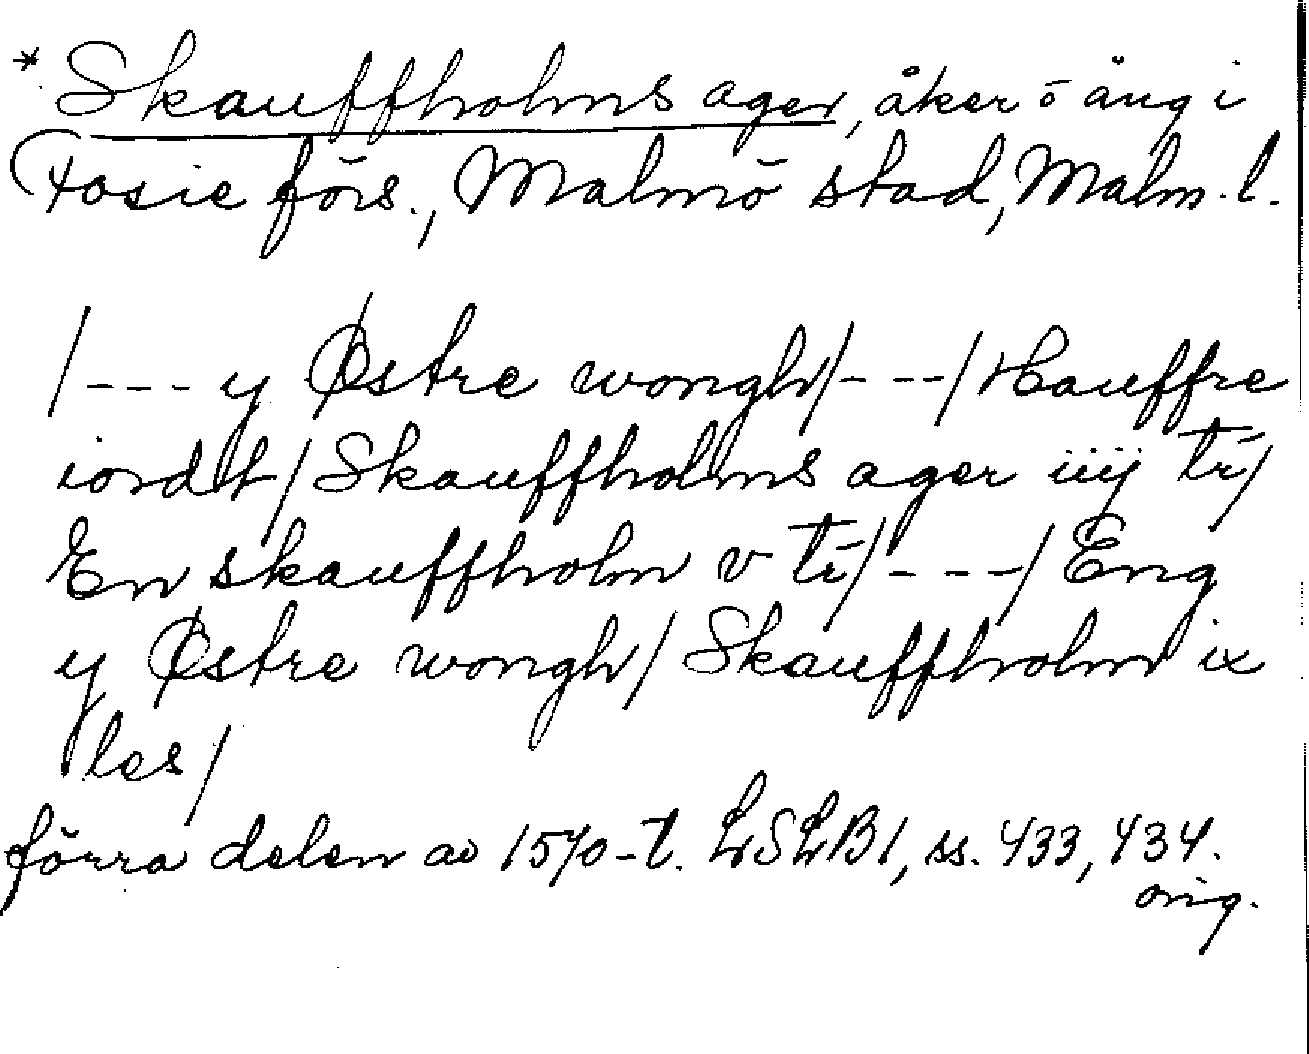 * Skauffholms ager, åker o äng i
Fosie förs., Malmö stad, Malm. l.
/--- y Østre wongh/---/Hauffre
iordt/Skauffholms ager iiij tr̄/
En skauffholm v tr̄/---/Eng
y Østre wongh/Skauffholm ix
les/
förra delen av 1570-t. LSLB1, ss. 433, 434.
orig.